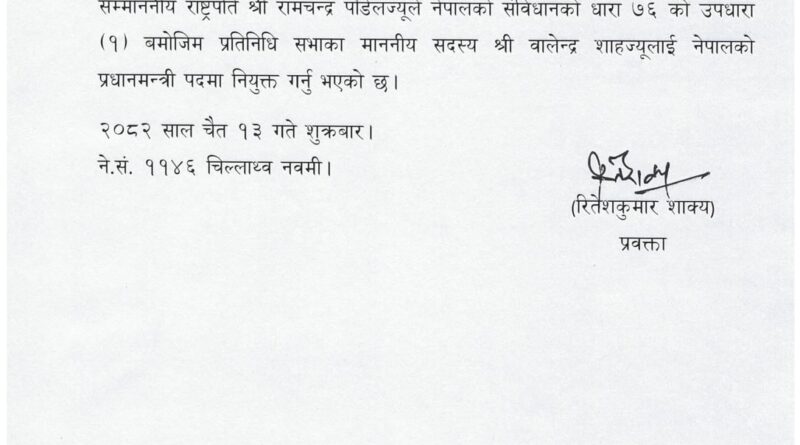 सम्माननीय राष्ट्रपति श्री रामचन्द्र पौडेलज्यूले नेपालको संविधानको धारा ७६ को उपधारा
(१) बमोजिम प्रतिनिधि सभाका माननीय सदस्य श्री वालेन्द्र शाहज्यूलाई नेपालको
प्रधानमन्त्री पदमा नियुक्त गर्नु भएको छ।
२०८२ साल चैत १३ गते शुक्रबार।
ने.सं. ११४६ चिल्लाथ्व नवमी।
(रितेशकुमार शाक्य)
प्रवक्ता